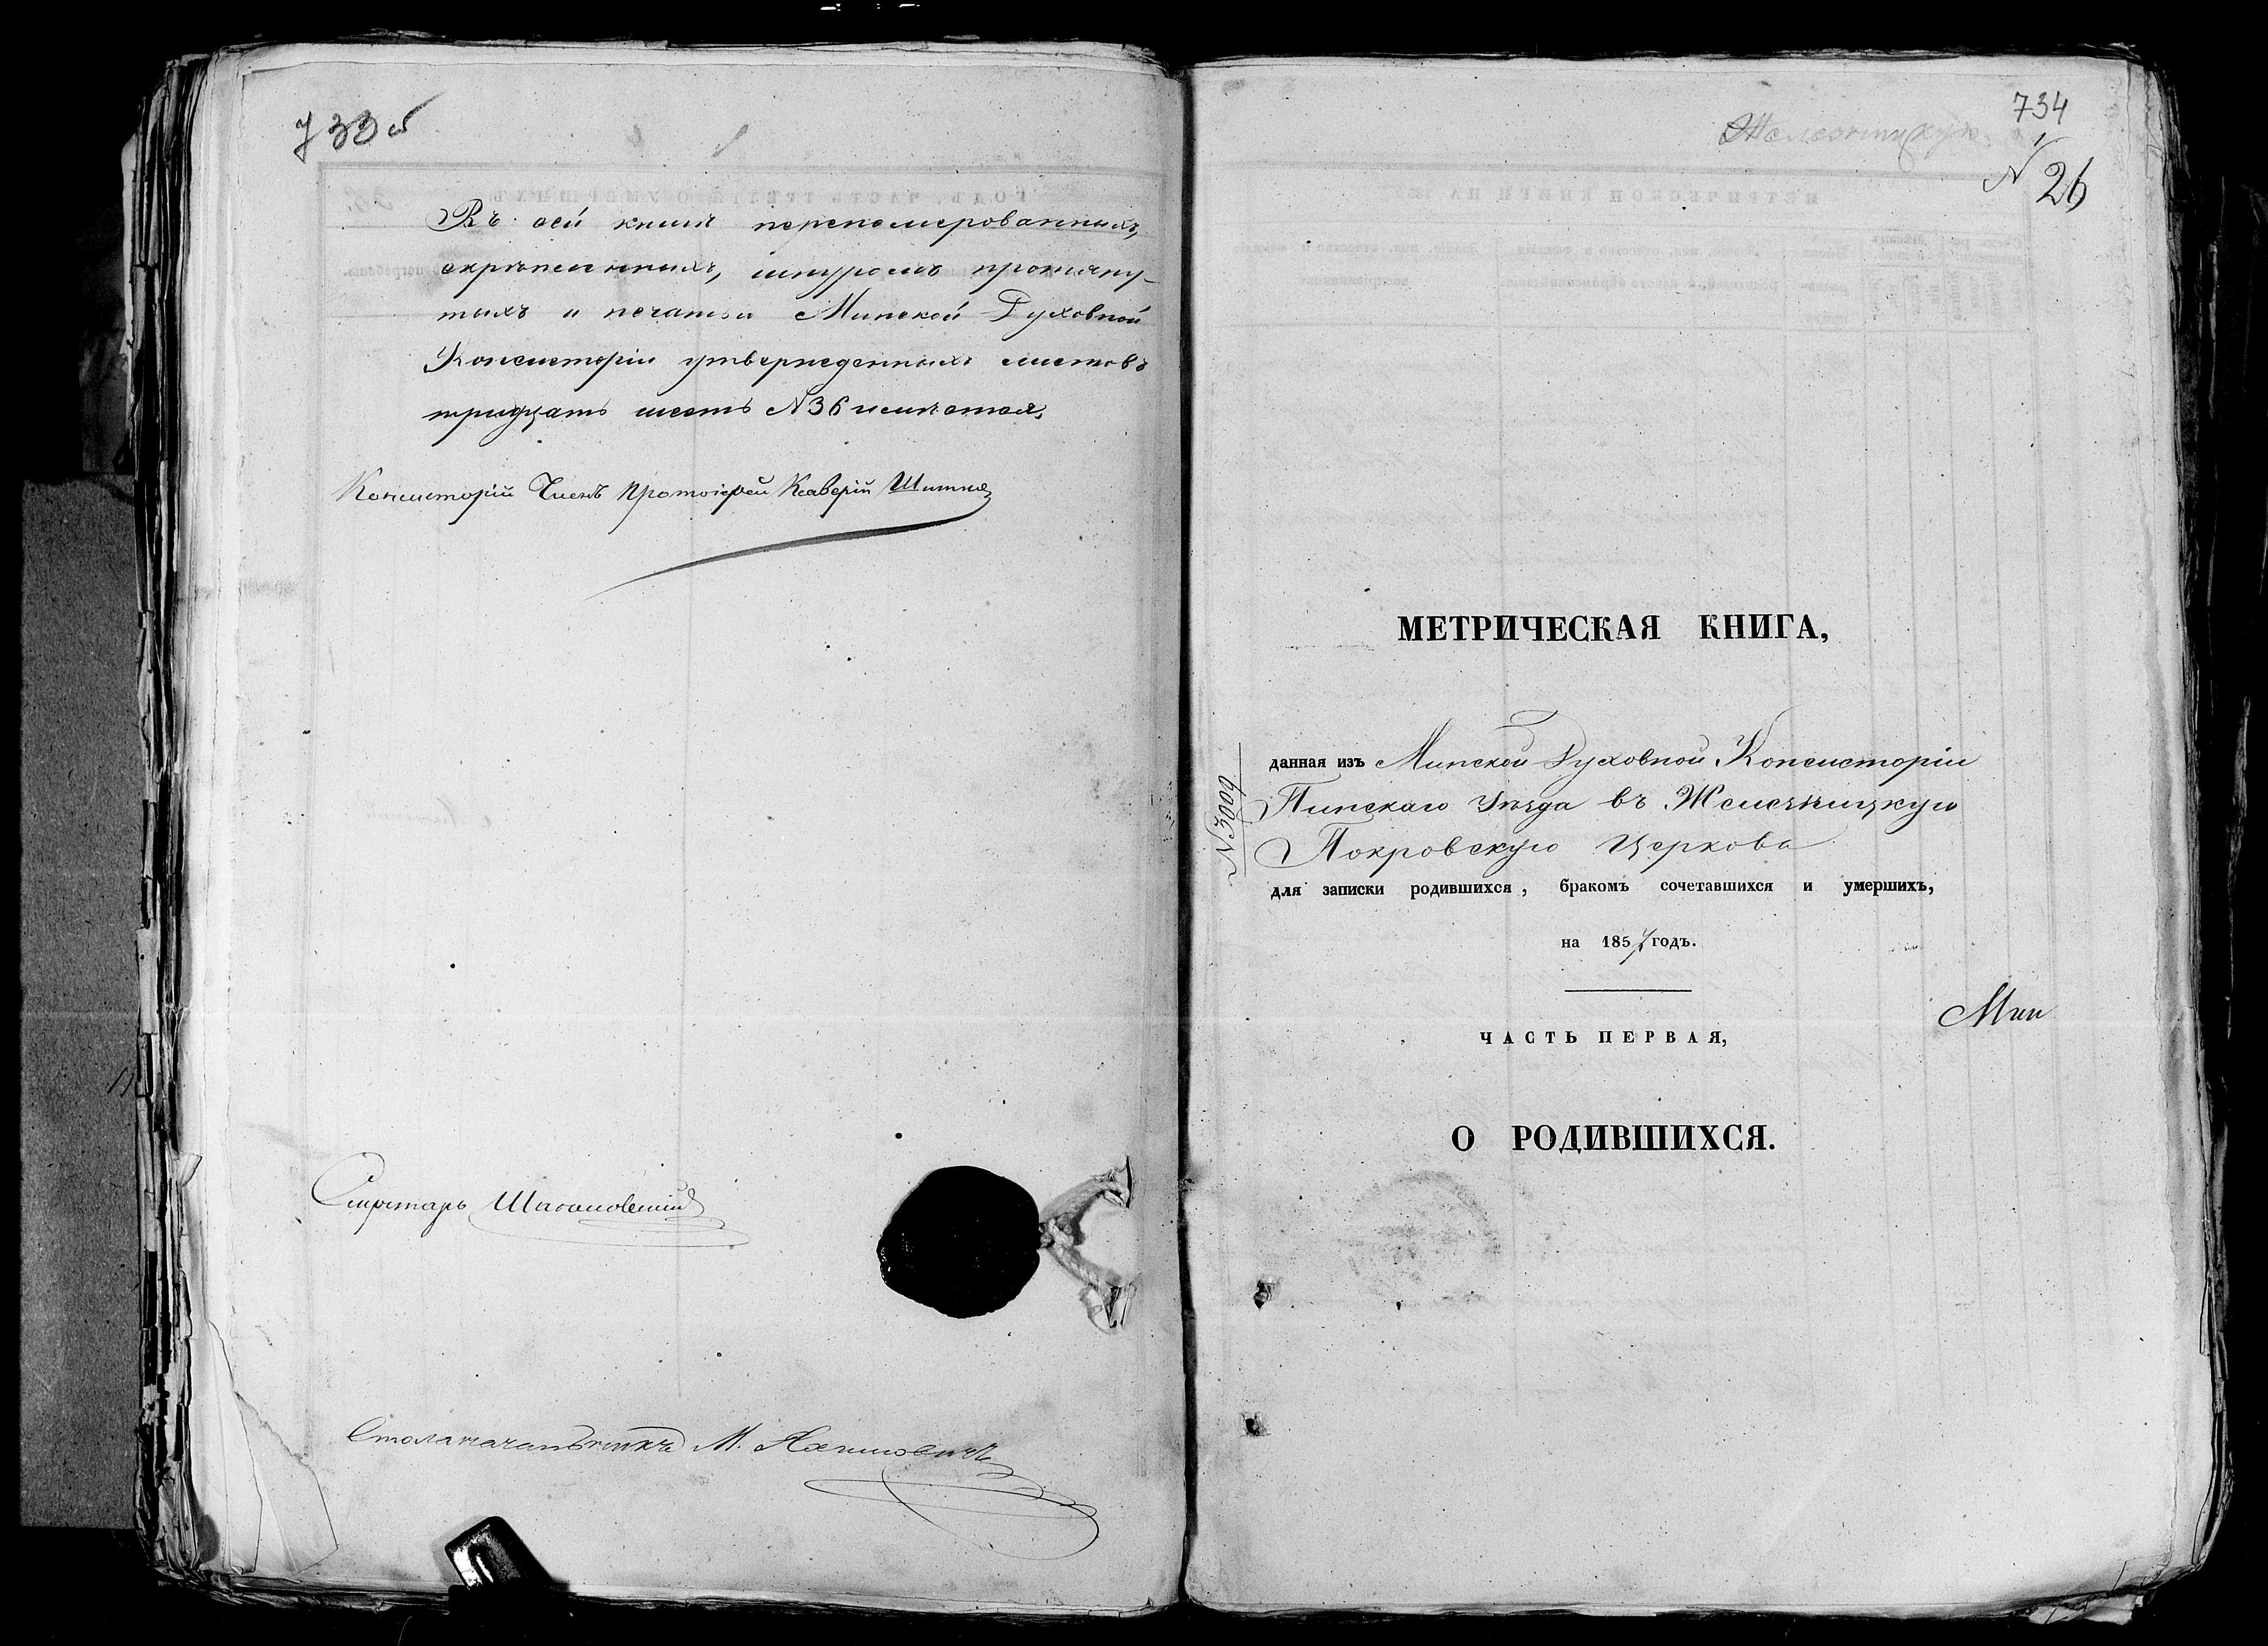 733 об
Въ сей книгѣ перенумерованныхъ,
скрѣпленныхъ, шнуромъ протяну-
тыхъ и печатью Минской Духовной
Консисторіи утвержденныхъ листовъ
тридцать шесть №36 имѣется.
Консисторіи Членъ Протоіерей Ксаверій
Секретарь
Столоначальникъ М.
734
№ 26
МЕТРИЧЕСКАЯ КНИГА,
данная изъ Минской Духовной Консисторіи
Пинскаго Уѣзда въ Жемезницкую
Покровскую Церковь
№3009
для записки родившихся, бракомъ сочетавшихся и умершихъ,
на 1857 годъ.
Мин
ЧАСТЬ ПЕРВАЯ,
О РОДИВШИХСЯ.